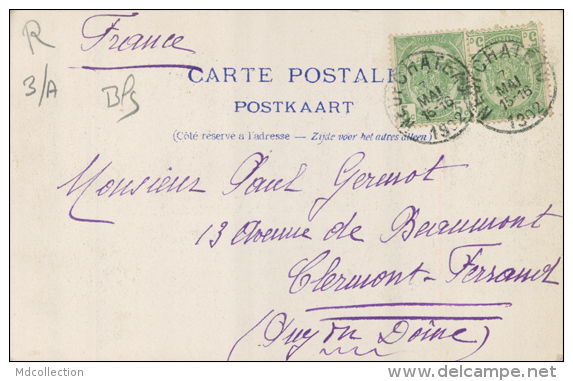 France
R
3/A
CARTE POSTALE
POSTKAART
(Côté réservé a l'adresse — Zijde voor het adres alleen)
NEUFCHATEAU
7
MAI
15-16
1902
NEUFCHATEAU
7
MAI
15-16
1902
Monsieur Paul Germot
13 Avenue de Beaumont
Clermont-Ferrand
(Puy du Dôme)
Mdcollection
www.delcampe.net